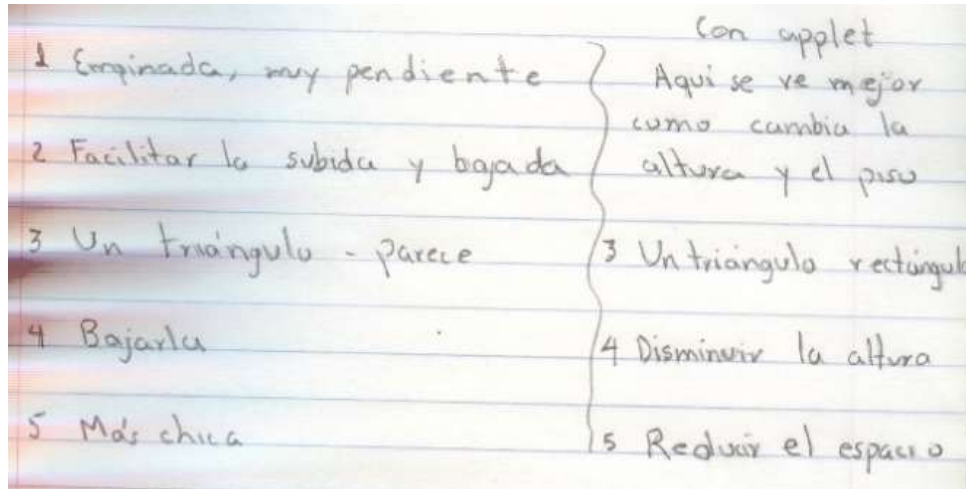 1 Empinada, muy pendiente
2 Facilitar la subida y bajada
3 Un triángulo - parece
4 Bajarla
5 Más chica
Con applet
Aqui se ve mejor
como cambia la
altura y el piso
3 Un triángulo rectángulo
4 Disminuir la altura
5 Reducir el espacio